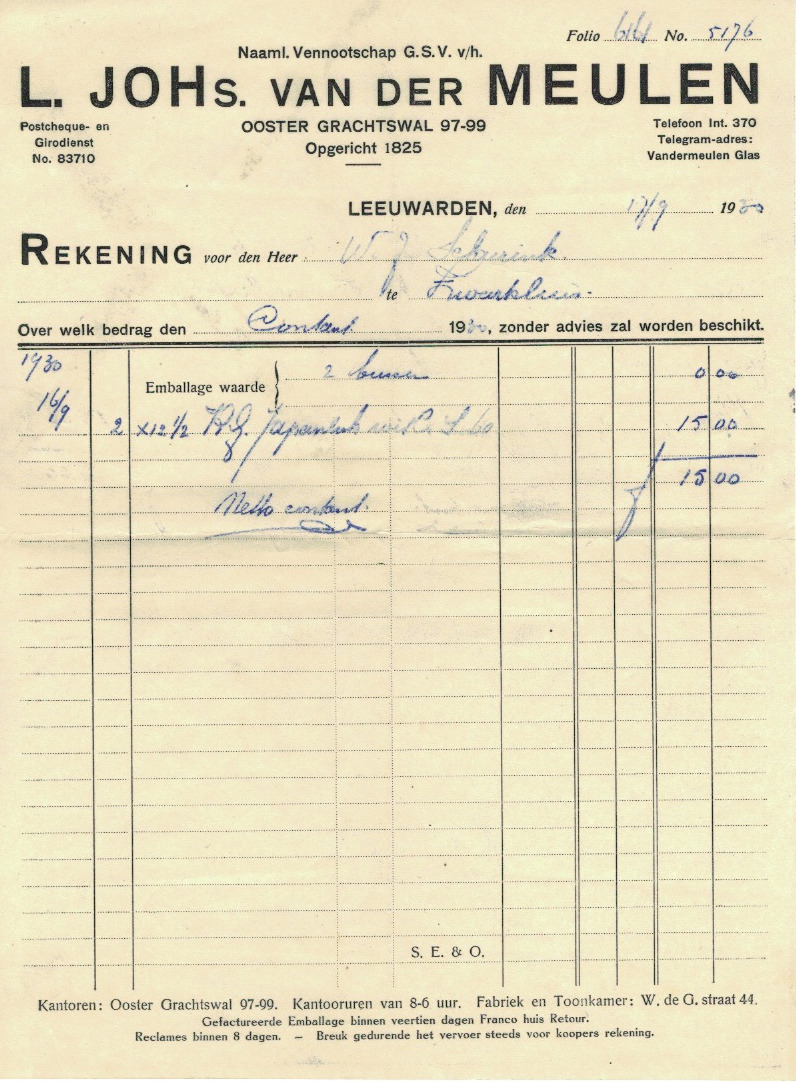 Folio 614 No. 5176
Naaml. Vennootschap G.S.V. v/h.
L. JOHs. VAN DER MEULEN
Postcheque- en
Girodienst
No. 83710
OOSTER GRACHTSWAL 97-99
Opgericht 1825
Telefoon Int. 370
Telegram-adres:
Vandermeulen Glas
LEEUWARDEN, den 17/9 1930
REKENING voor den Heer W. J.
te Zwartsluis.
Over welk bedrag den Contant 1930, zonder advies zal worden beschikt.
1930
Emballage waarde 2 bussen 0 00
16/9 2 x 12 1/2 K.g. 60 15 00
15 00
Netto contant.
S. E. & O.
Kantoren: Ooster Grachtswal 97-99. Kantooruren van 8-6 uur. Fabriek en Toonkamer: W. de G. straat 44.
Gefactureerde Emballage binnen veertien dagen Franco huis Retour.
Reclames binnen 8 dagen. — Breuk gedurende het vervoer steeds voor koopers rekening.